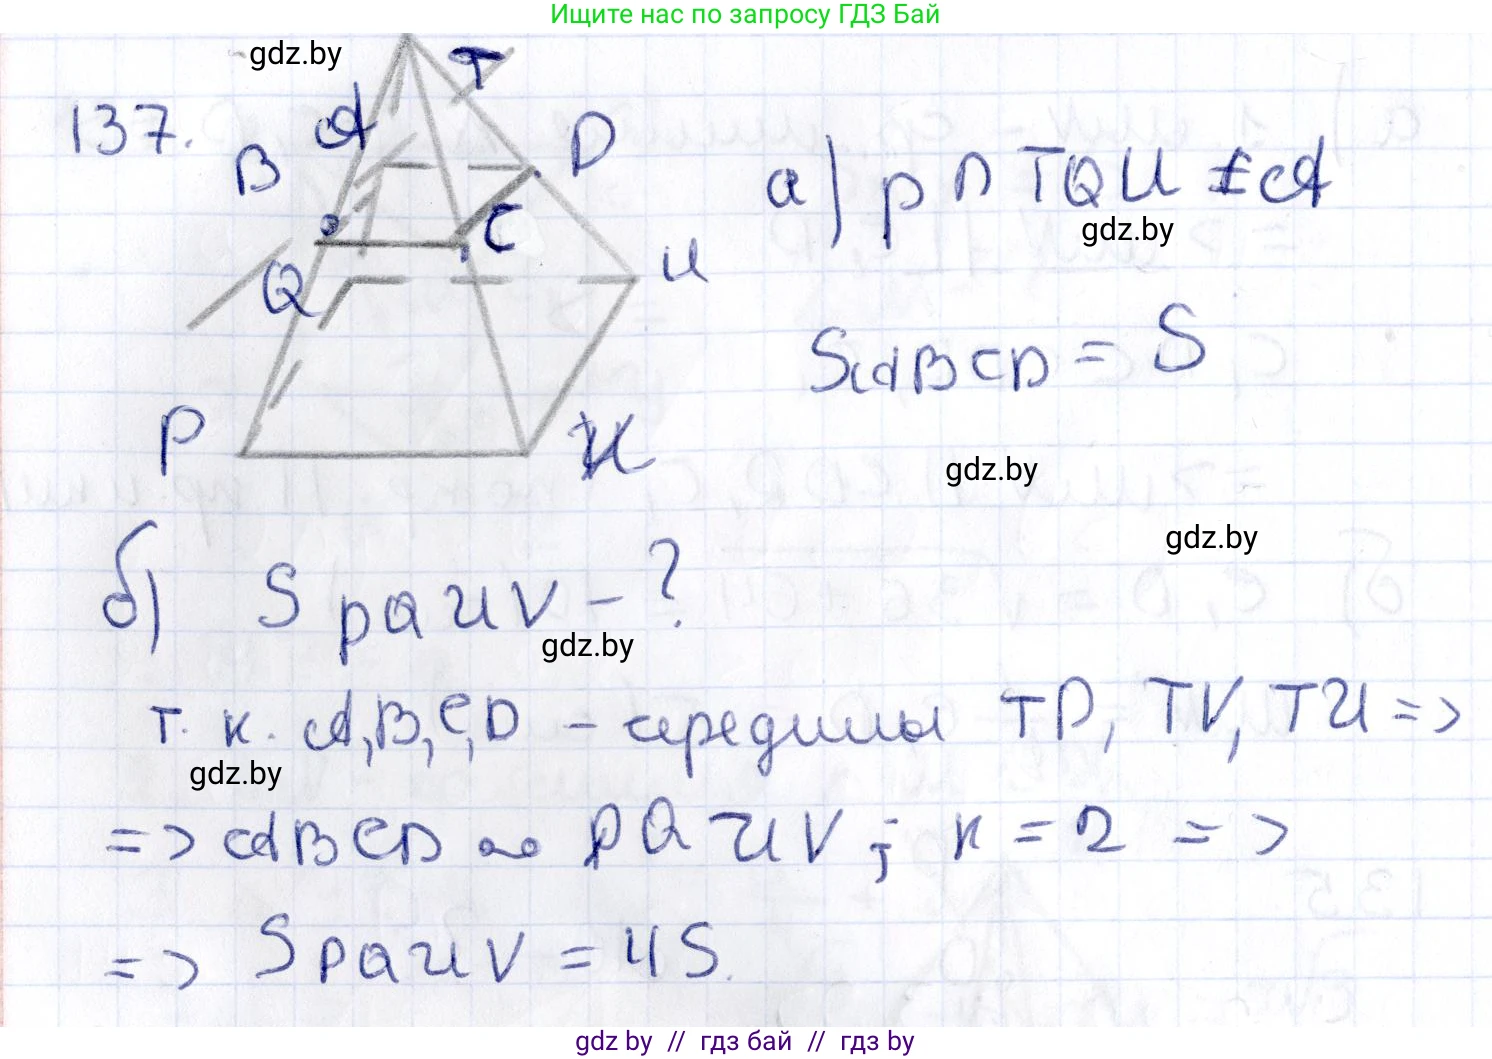 Ищите нас по запросу ГДЗ Бай
gdz.by
137.
T
A
B
D
C
Q
И
P
а) p ∩ TQU = A
gdz.by
SABCD = S
gdz.by
gdz.by
б) SPQUV - ?
gdz.by
т. к. A, B, C, D - середины TP, TV, TU =>
gdz.by
=> ABCD ∾ PQUV; к = 2 =>
=> SPQUV = 4S.
gdz.by // гдз бай // гдз by